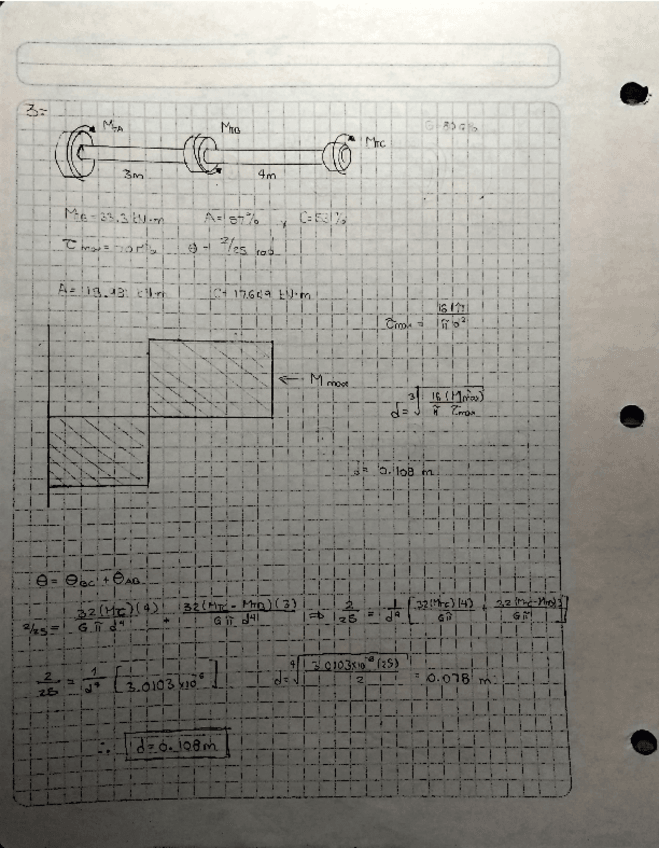 3=
M_TA M_TB M_TC
3m 4m
M_TB = 33.3 kN·m A= 37% y C= 53%
τ max = 70 MPa θ = 2/25 rad
C= 17.649 kN·m
τmax = 16 M / π d³
← M max
d = ∛ 16 (Mmax) / π τmax
d= 0.108 m
θ = θBC + θAB
2/25 = 32(MTC)(4) / G π d⁴ + 32(MTC - MTB)(3) / G π d⁴ => 2/25 = 1/d⁴ [ 32(MTC)(4) / Gπ + 32(MTC-MTB)3 / Gπ ]
2/25 = 1/d⁴ [ 3.0103 x10⁻⁶ ] d= ∜ 3.0103x10⁻⁶ (25) / 2 = 0.078 m
∴ d=0.108m